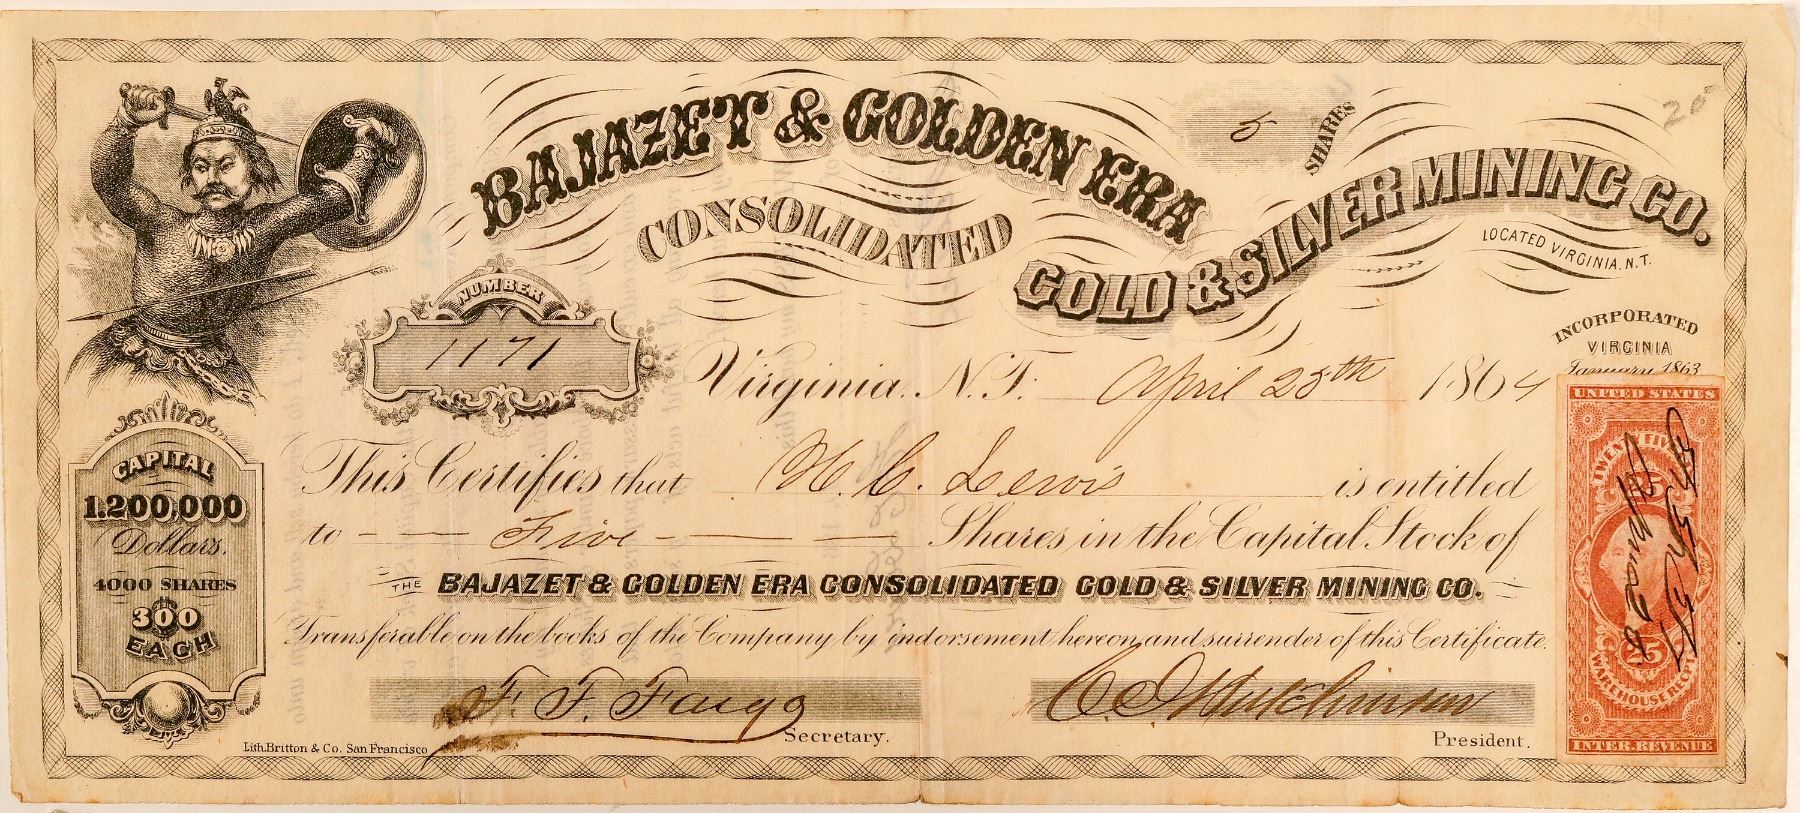 BAJAZET & GOLDEN ERA
CONSOLIDATED
GOLD & SILVER MINING CO.
5 SHARES
20
LOCATED VIRGINIA, N.T.
INCORPORATED
VIRGINIA
January 1863
NUMBER
1171
Virginia. N.T. April 25th 1864
CAPITAL
1.200,000
Dollars.
4000 SHARES
300
EACH
This Certifies that H. C. Lewis is entitled
to - - Five - - - Shares in the Capital Stock of
THE BAJAZET & GOLDEN ERA CONSOLIDATED GOLD & SILVER MINING CO.
Transferable on the books of the Company by indorsement hereon, and surrender of this Certificate.
F. F. Fargo
Secretary.
Hutchinson
President.
Lith. Britton & Co. San Francisco
UNITED STATES
TWENTY FIVE
25
25
WAREHOUSE RECPT
INTER. REVENUE